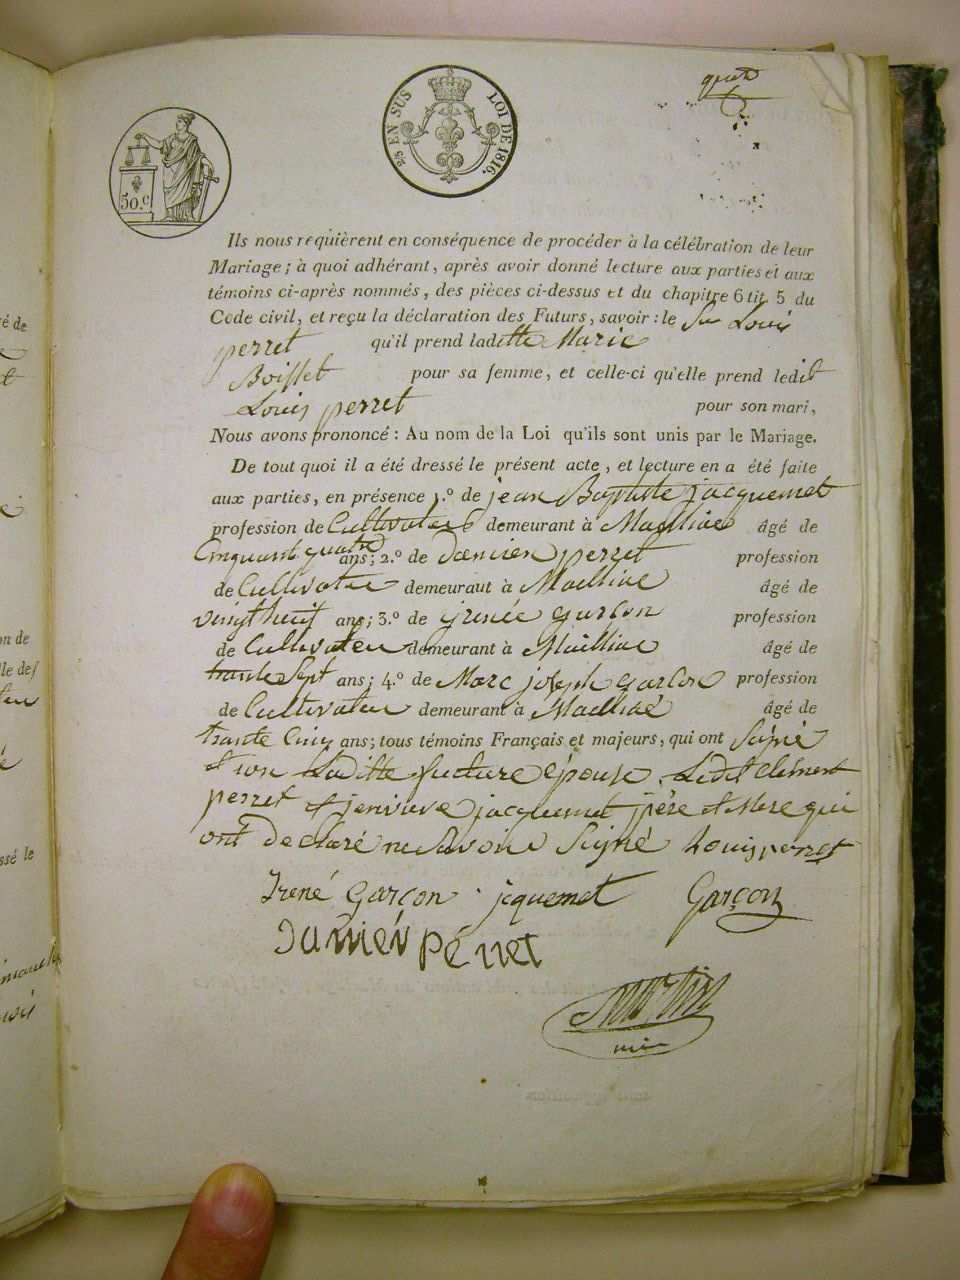 quatre
25 EN SUS LOI DE 1816.
50.c
Ils nous requièrent en conséquence de procéder à la célébration de leur
Mariage ; à quoi adhérant, après avoir donné lecture aux parties et aux
témoins ci-après nommés, des pièces ci-dessus et du chapitre 6 tit. 5 du
Code civil, et reçu la déclaration des Futurs, savoir : le Sr Louis
perret qu'il prend ladette Marie
Boisset pour sa femme, et celle-ci qu'elle prend ledit
Louis perret pour son mari,
Nous avons prononcé : Au nom de la Loi qu'ils sont unis par le Mariage.
De tout quoi il a été dressé le présent acte, et lecture en a été faite
aux parties, en présence 1.º de jean Baptiste jacquemet
profession de Cultivateur demeurant à âgé de
Cinquante quatre ans ; 2.º de Damien perret profession
de Cultivateur demeurant à âgé de
vingt huit ans ; 3.º de irenée garcon profession
de Cultivateur demeurant à âgé de
trante Sept ans ; 4.º de Marc joseph garcon profession
de Cultivateur demeurant à âgé de
trante Cinq ans ; tous témoins Français et majeurs, qui ont Signé
et non Laditte future épouse Ledit clément
perret et jenvieve jacquemet père et Mere qui
ont Declaré ne Savoir Signé Louis perret
Irené Garçon jquemet Garçon
Damien perret
Martin